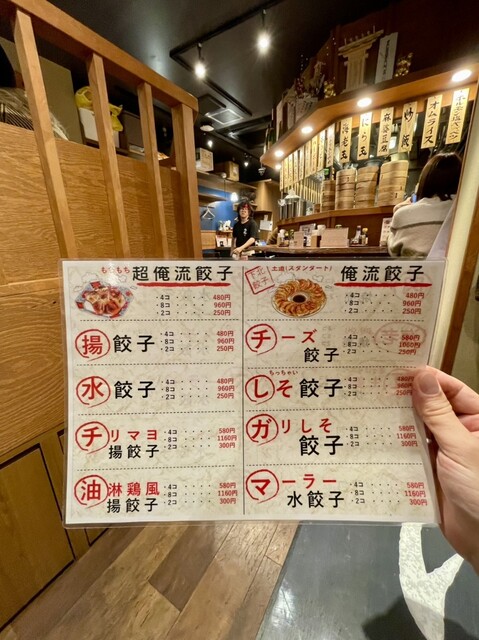 海老玉
にら玉
麻婆豆腐
炒飯
オムライス
もちもち
超俺流餃子
・4コ・・・・480円
・8コ・・・・960円
・2コ・・・・250円
揚餃子
・4コ・・・・480円
・8コ・・・・960円
・2コ・・・・250円
水餃子
・4コ・・・・480円
・8コ・・・・960円
・2コ・・・・250円
チリマヨ
揚餃子
・4コ・・・・580円
・8コ・・・・1160円
・2コ・・・・300円
油淋鶏風
揚餃子
・4コ・・・・580円
・8コ・・・・1160円
・2コ・・・・300円
下北餃子
王道(スタンダート)
俺流餃子
・4コ・・・・480円
・8コ・・・・960円
・2コ・・・・250円
チーズ
餃子
・4コ・・・・580円
・8コ・・・・1060円
・2コ・・・・250円
もっちゃい
しそ餃子
・4コ・・・・480円
・8コ・・・・960円
・2コ・・・・250円
ガリしそ
餃子
・4コ・・・・580円
・8コ・・・・1160円
・2コ・・・・300円
マーラー
水餃子
・4コ・・・・580円
・8コ・・・・1160円
・2コ・・・・300円